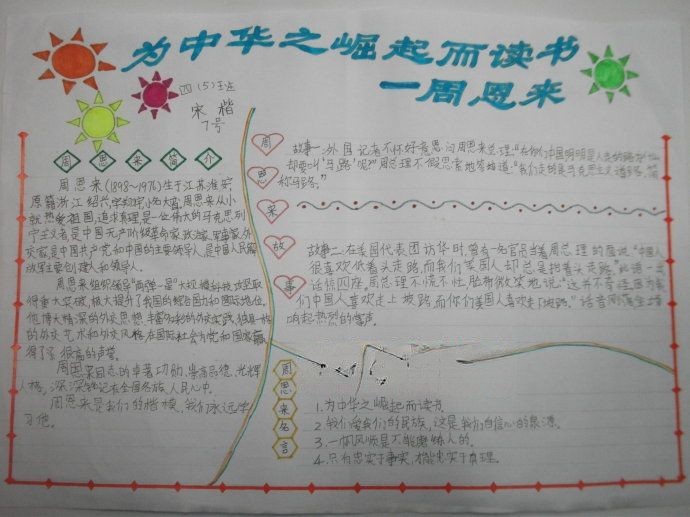 为中华之崛起而读书
—周恩来
四(5)班
宋楷
7号
周恩来简介
周恩来(1898~1976)生于江苏淮安,
原籍浙江绍兴,字翔宇,小名大鸾,周恩来从小
就热爱祖国,追求真理是一位伟大的马克思列
宁主义者是中国无产阶级革命家,政治家,军事家,外
交家,是中国共产党和中国的主要领导人,是中国人民解
放军主要创建人和领导人。
周恩来组织领导"两弹一星"大规模科技攻坚取
得重大突破,极大提升了我国的综合国力和国际地位,
他博大精深的外交思想,丰富多彩的外交实践,独具一格
的外交艺术和外交风格在国际社会为党和国家赢
得了了很高的声誉。
周恩来同志的卓著功勋,崇高品德,光辉
人格,深深铭记在全国各族人民心中。
周恩来是我们的楷模,我们永远学
习他。
周恩来故事
故事一:外国记者不怀好意思问周恩来总理:"在你们中国明明是人走的路
却要叫'马路'呢?"周总理不假思索地答道:"我们走的是马克思主义道路,简
称马路。"
故事二:在美国代表团访华时,曾有一名官员当着周总理的面说:"中国人
很喜欢低着头走路,而我们美国人却总是抬着头走路。"此语一出
话惊四座,周总理不慌不忙,脸带微笑地说:"这并不奇怪,因为我
们中国人喜欢走上坡路,而你们美国人喜欢走下坡路。"话音刚落全场
响起热烈的掌声。
周恩来名言
1.为中华之崛起而读书
2.我们爱我们的民族,这是我们自信心的泉源。
3.一帆风顺是不能磨炼人的。
4.只有忠实于事实,才能忠实于真理。